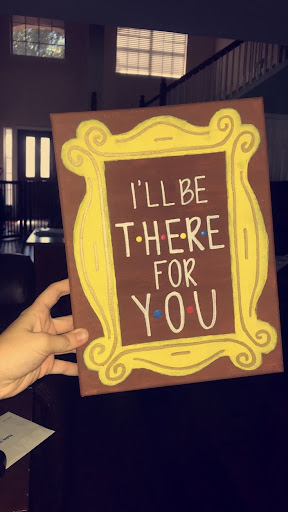 I'LL BE
T•H•E•R•E
FOR
Y•O•U